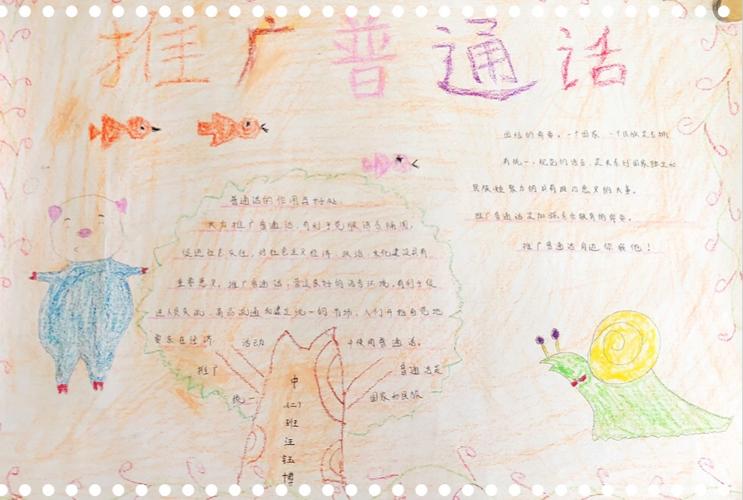 推广普通话
普通话的作用与好处
大力推广普通话,有利于克服语言隔阂,
促进社会交往,对社会主义经济、政治、文化建设具有
重要意义。推广普通话,营造良好的语言环境,有利于促
进人员交流,商品流通和建立统一的市场。人们开始自觉地
要求在经济 活动 中使用普通话。
推广 普通话是
统一 国家和民族
中
(二)
班
汪
钰
博
团结的需要。一个国家、一个民族是否拥
有统一、规范的语言,是关系到国家独立和
民族凝聚力的具有政治意义的大事。
推广普通话是加强素质教育的需要。
推广普通话有进你我他!